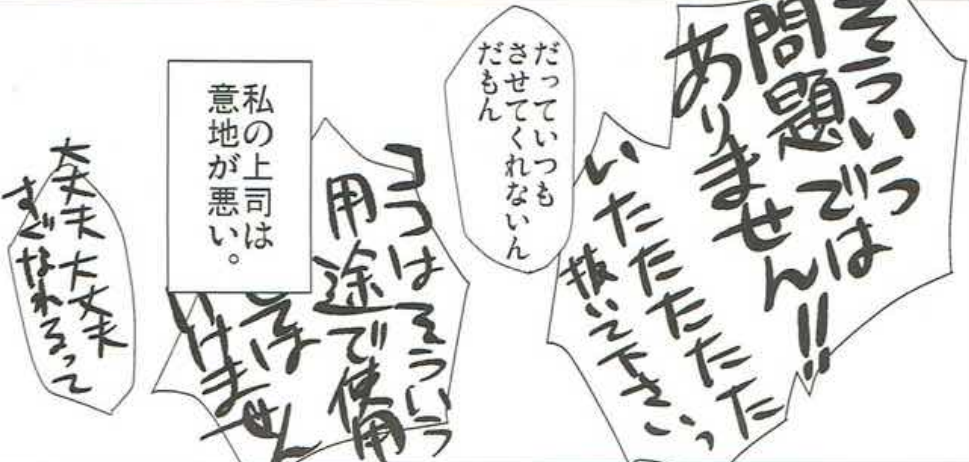 そういう
問題では
ありません!!
いたたたたたた
抜いて下さいっ
だっていつも
させてくれないん
だもん
ココはそういう
用途で使用
しては
いけません
私の上司は
意地が悪い。
大丈夫大丈夫
すぐなれるって